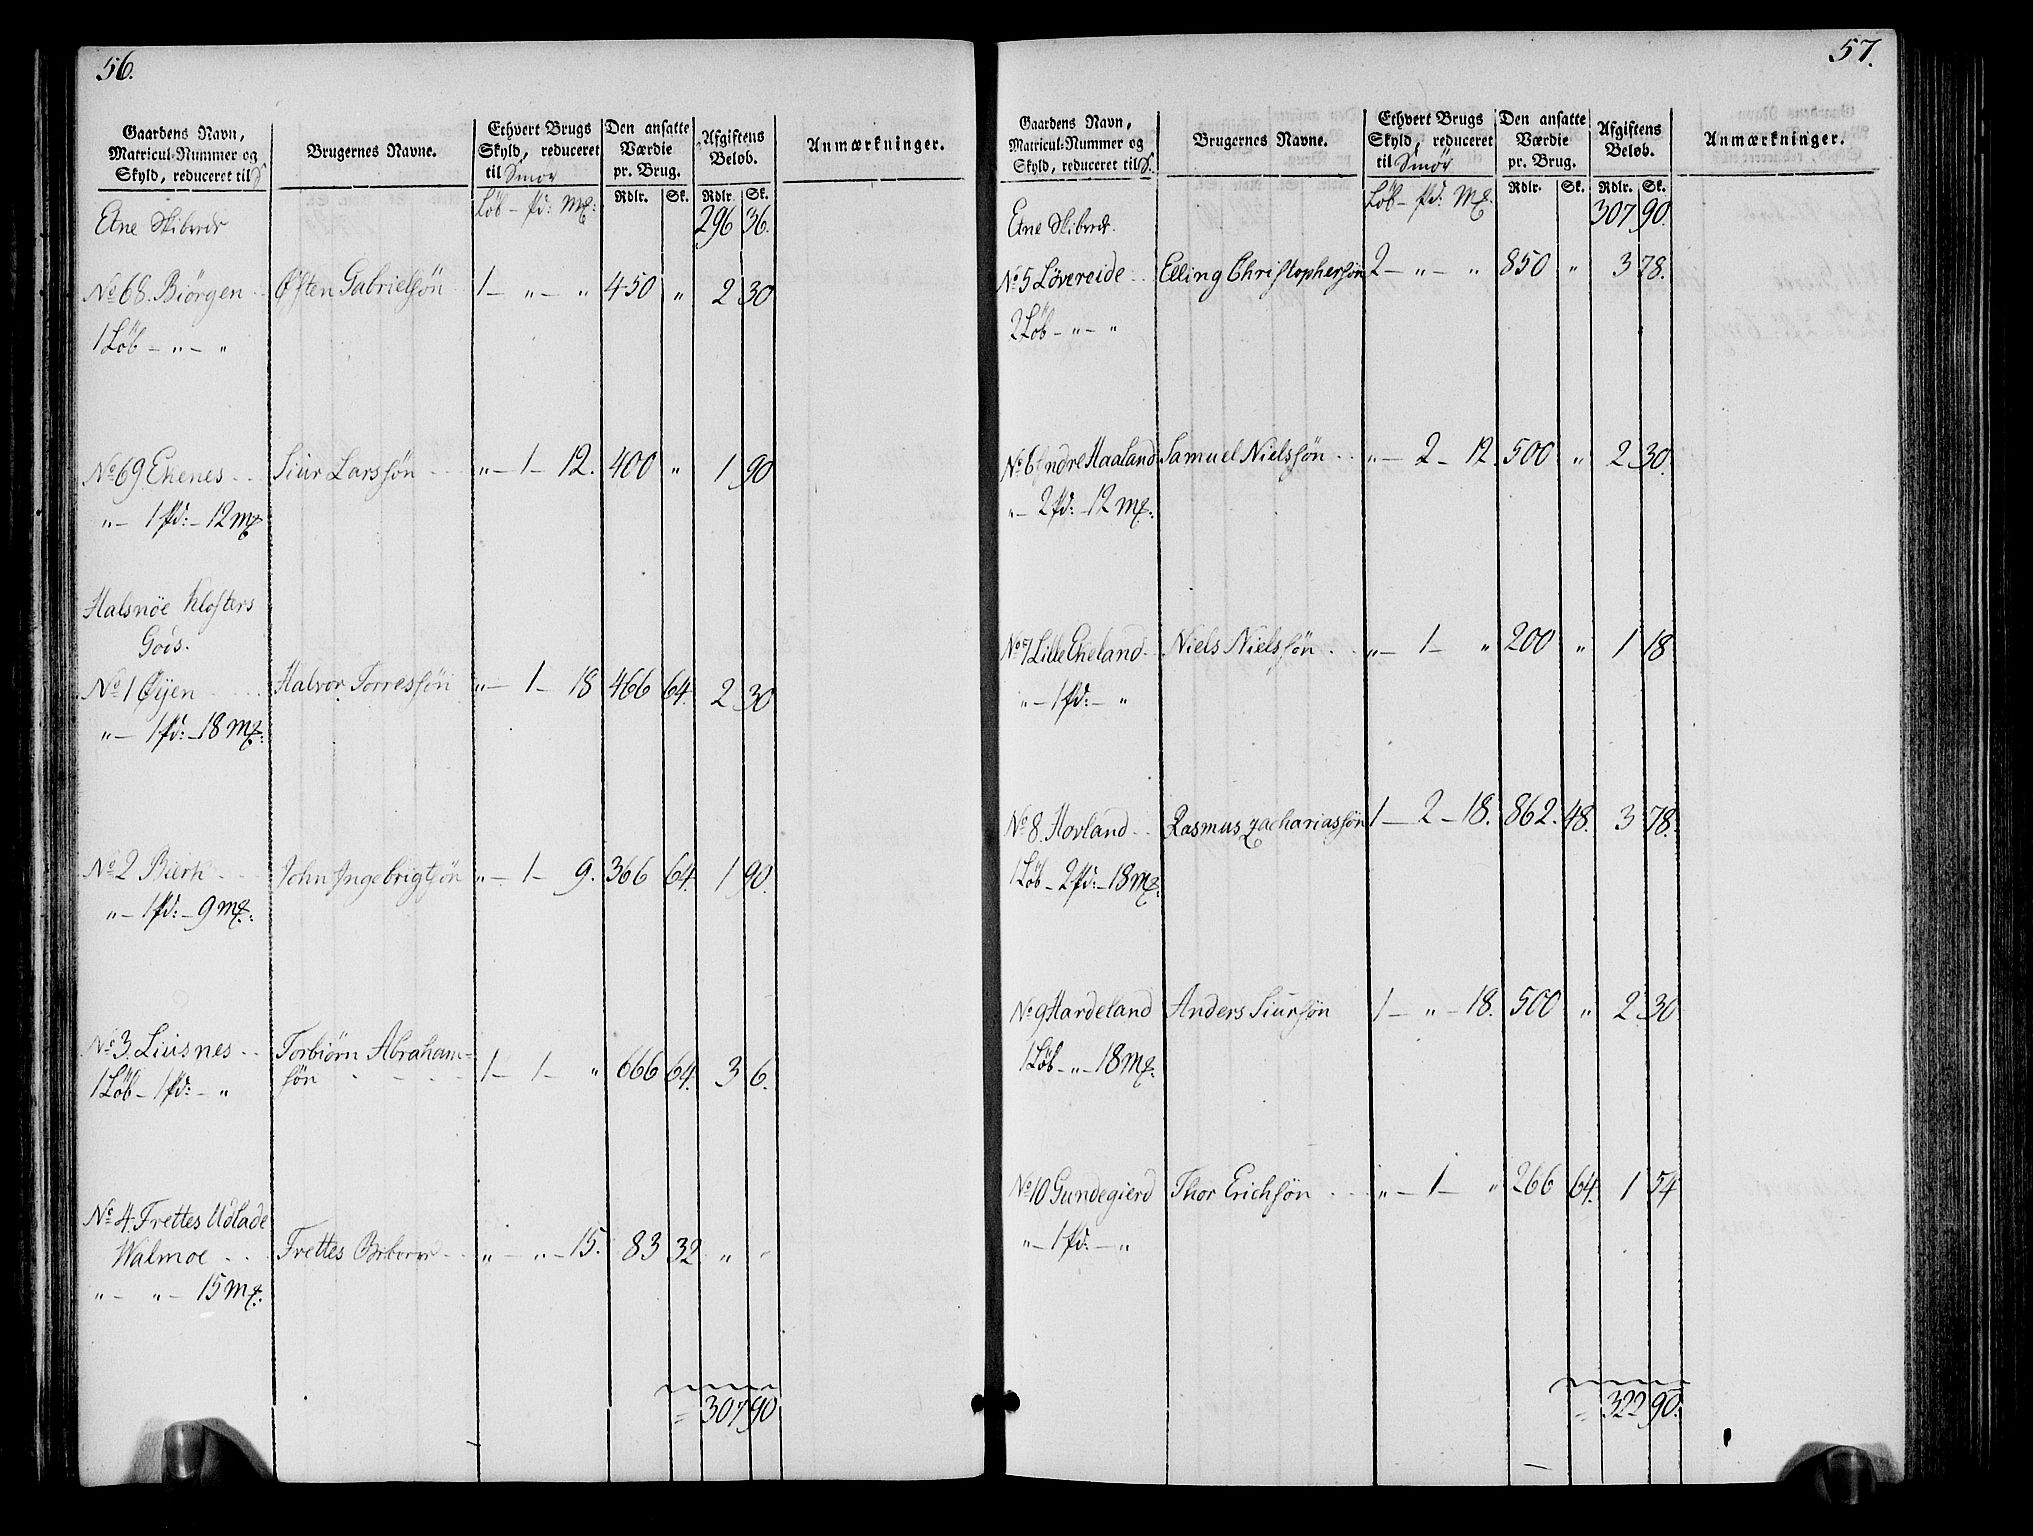 56.
Gaardens Navn, Matricul-Nummer og Skyld, reduceret til S
Brugernes Navne.
Ethvert Brugs Skyld, reduceret til Smør
Den ansatte Værdie pr. Brug.
Afgiftens Beløb.
Anmærkninger.
Løb - pd: mk:
Rdlr. Sk. Rdlr. Sk.
Etne Skibrede 296 36.
No 68. Biørgen Østen Gabrielsøn 1 - " - " 450 " 2 30
1 Løb - " - "
No 69 Ekenes Siur Larssøn " - 1 - 12. 400 " 1 90
" - 1 pd: - 12 mk
Halsnöe Klosters
Gods.
No 1 Øyen Halvor Torressøn " - 1 - 18 466 64. 2 30
" - 1 pd: - 18 mk:
No 2 Bierk John Ingebrigtsøn " - 1 - 9. 366 64. 1 90.
" - 1 pd: - 9 mk:
No 3. Liusnes Torbiørn Abraham=
1 Løb - 1 pd: - " søn 1 - 1 - " 666 64. 3 6.
No 4. Frettes Udlade
Walmoe Frettes Beboere " - " - 15. 83 32 " "
" - " - 15 mk:
= 307 90
57.
Gaardens Navn, Matricul-Nummer og Skyld, reduceret til S.
Brugernes Navne.
Ethvert Brugs Skyld, reduceret til Smør
Den ansatte Værdie pr. Brug.
Afgiftens Beløb.
Anmærkninger.
Løb - pd: mk
Rdlr. Sk. Rdlr. Sk.
Etne Skibrede. 307 90.
No 5 Løvereide Elling Christophersøn 2 - " - " 850 " 3 78.
2 Løb - " - "
No 6 Indre Haaland Samuel Nielssøn " - 2 - 12. 500 " 2 30.
" - 2 pd: - 12 mk:
No 7 Lille Ekeland Niels Nielssøn " - 1 - " 200 " 1 18
" - 1 pd: - "
No 8. Hovland Rasmus Zachariassøn 1 - 2 - 18. 862. 48. 3 78.
1 Løb - 2 pd: - 18 mk:
No 9 Hardeland Anders Siursøn 1 - " - 18. 500 " 2 30.
1 Løb - " - 18 mk:
No 10 Gundegierd Thor Erichsøn " - 1 - " 266 64. 1 54
" - 1 pd: - "
= 322 90.